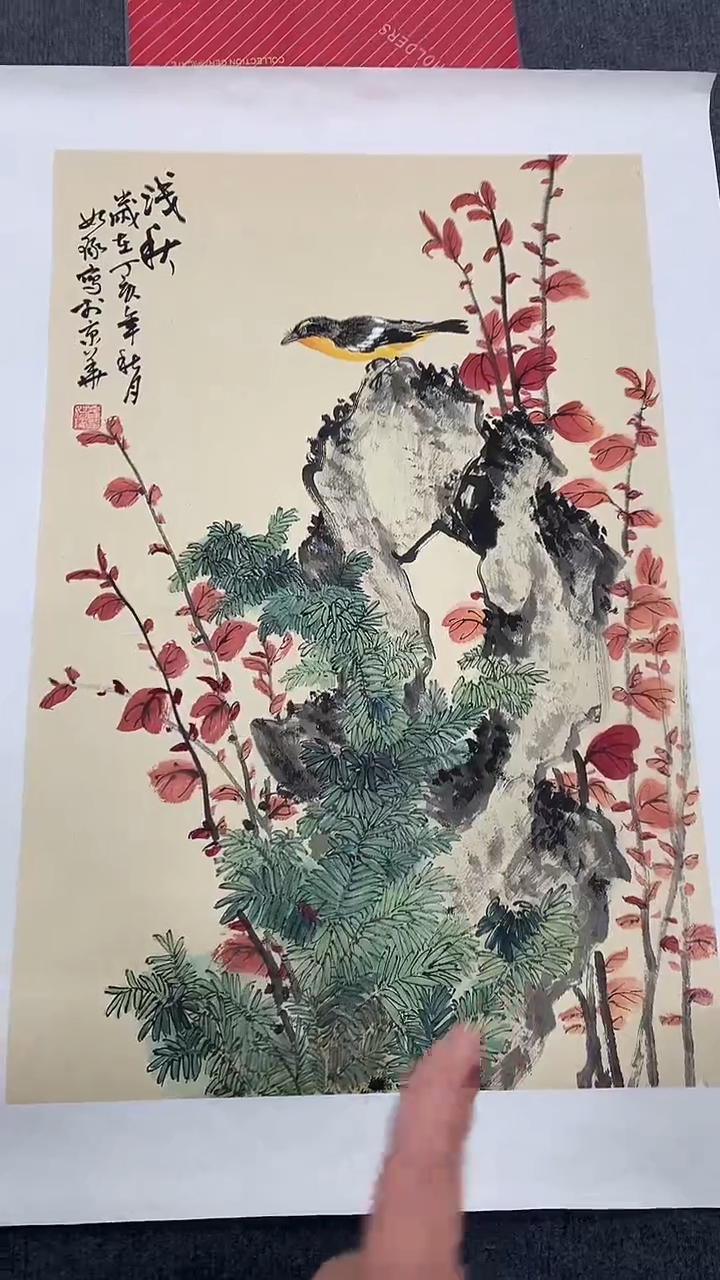 浅秋
歲在丁亥年秋月
如琢寫於京華
COLLECTION CERTIFICATE
HOLDERS